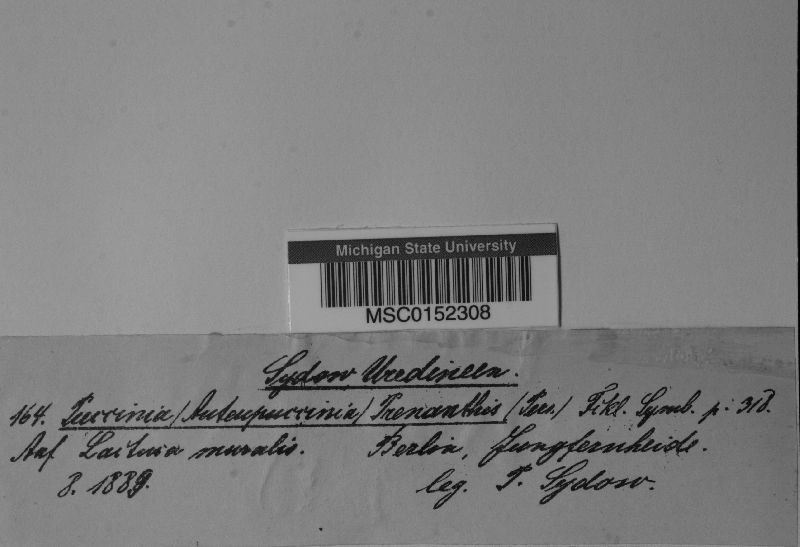 Michigan State University
MSC0152308
Sydow Uredineen.
164. Puccinia (Auteupuccinia) Prenanthis (Pers.) Fckl. Symb. p. 318.
Auf Lactuca muralis. Berlin, Jungfernheide.
8. 1889. leg. P. Sydow.